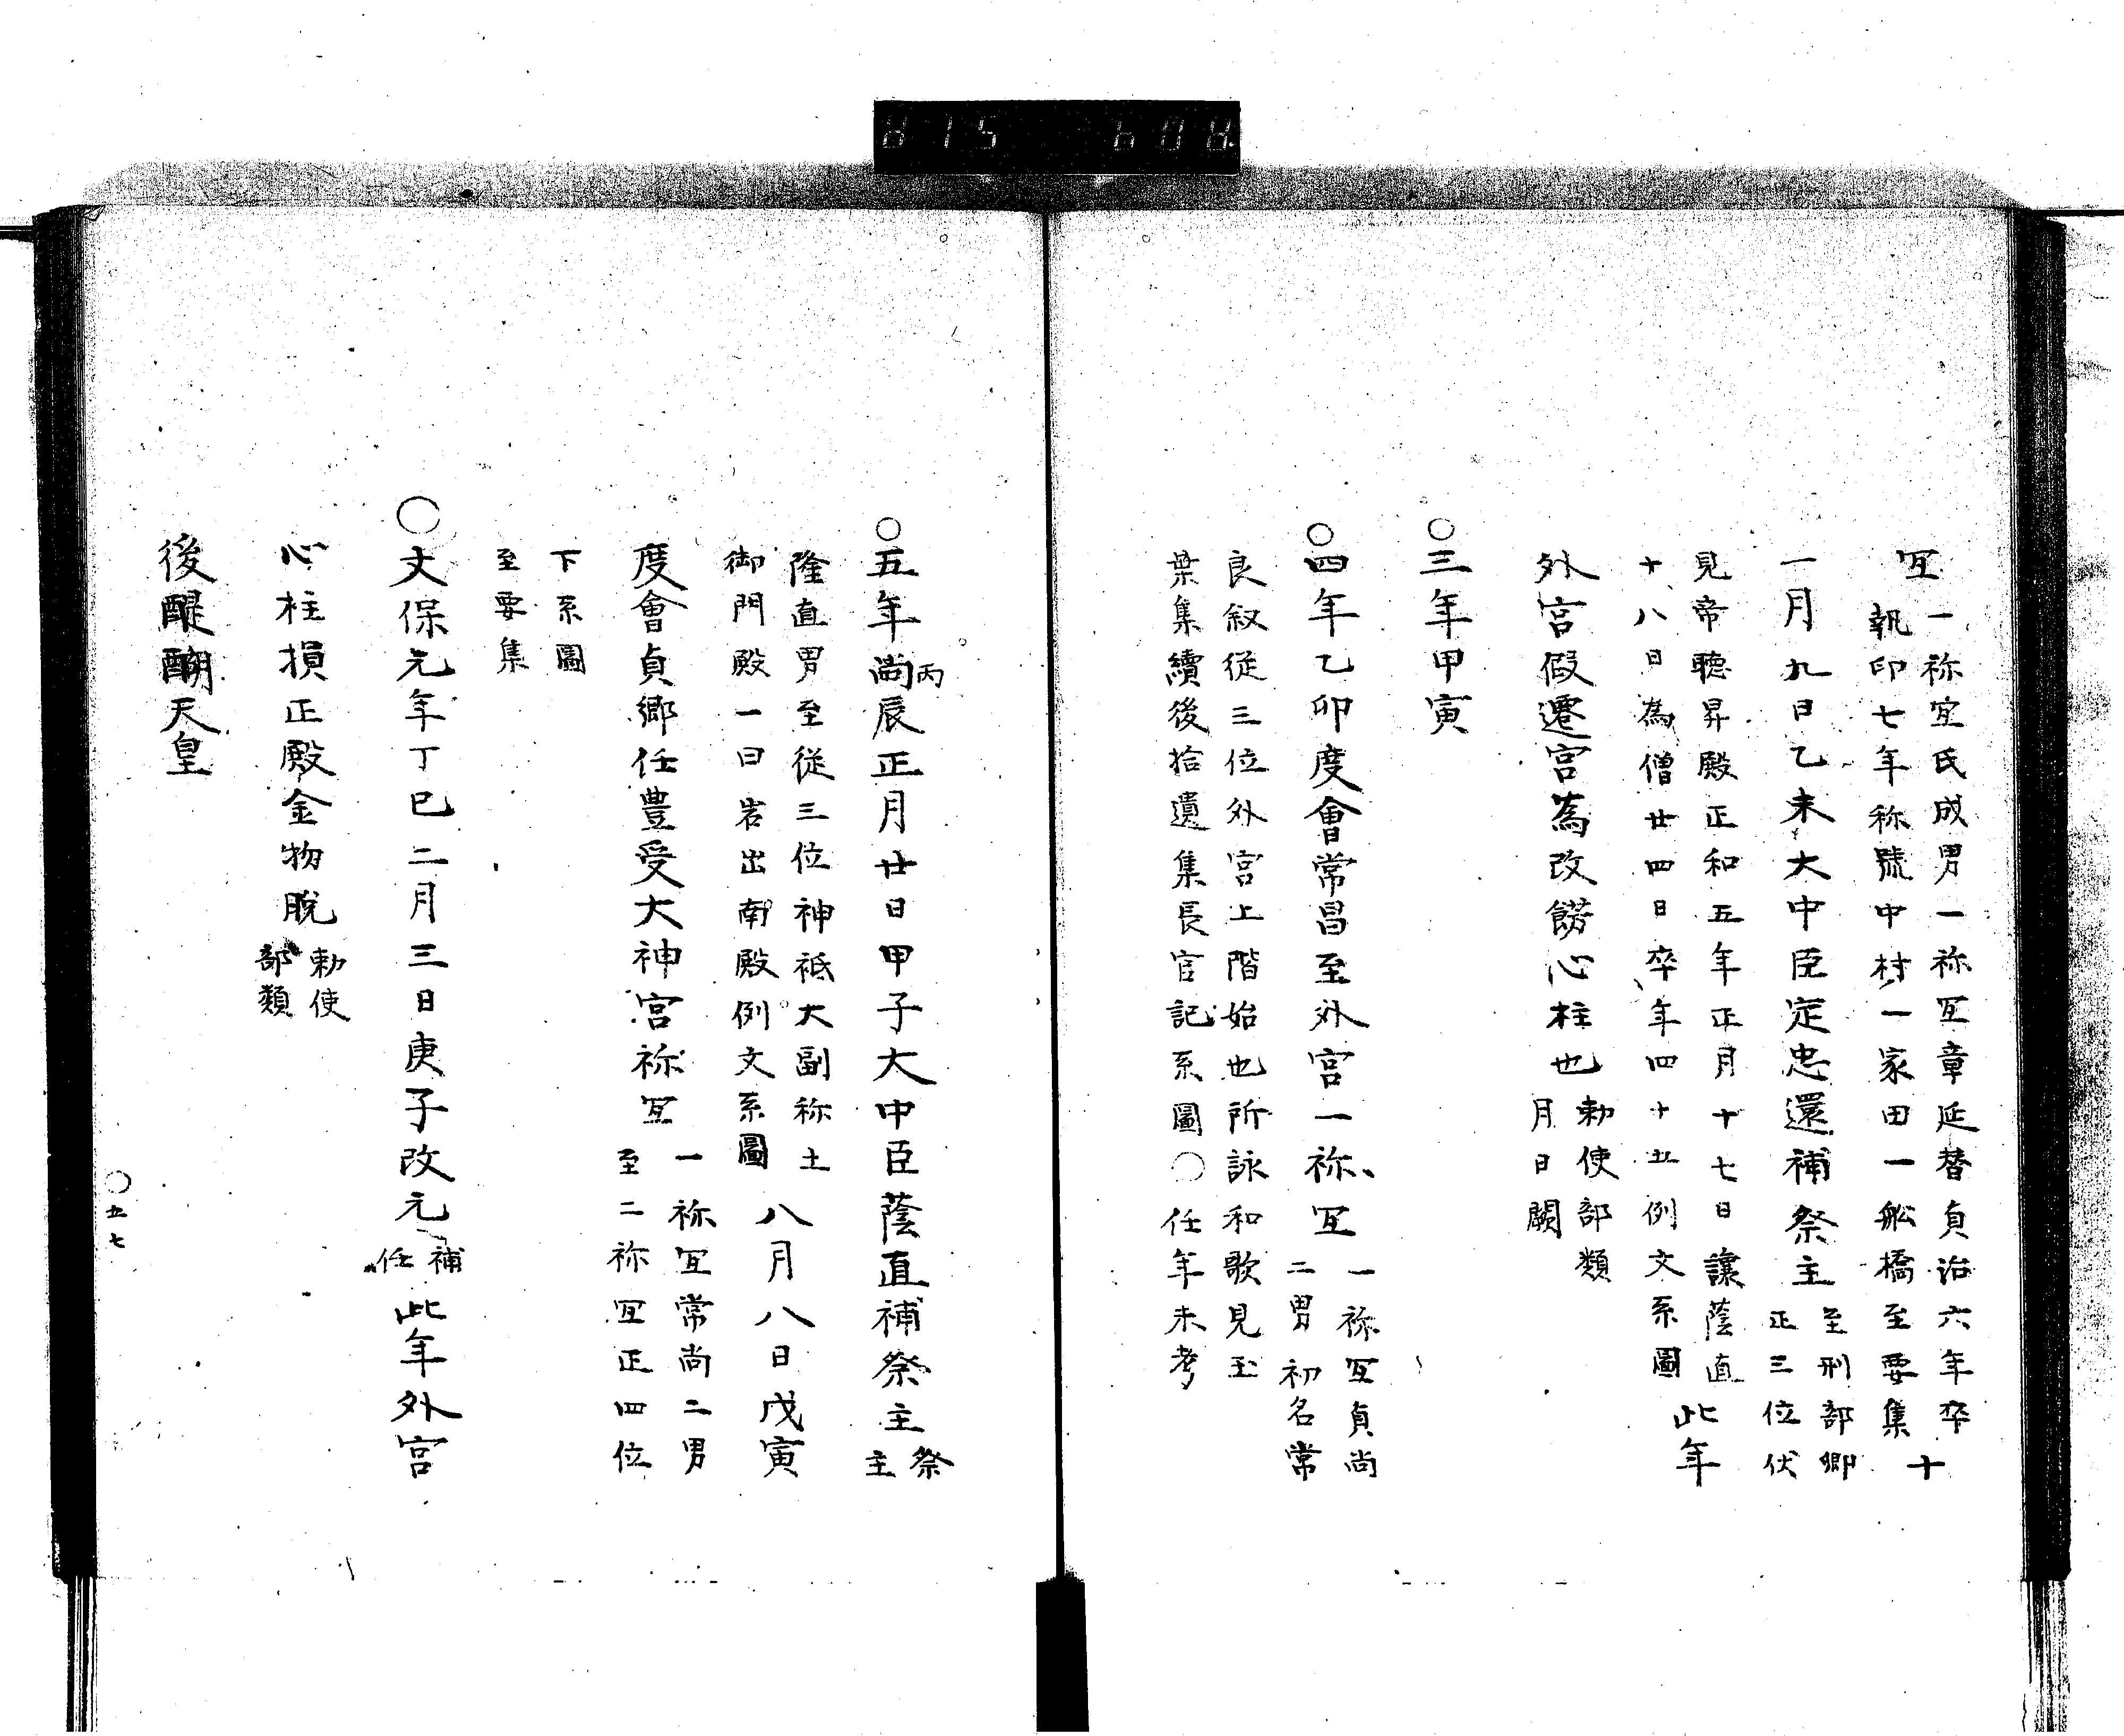 冝
一祢宜氏成男一祢冝章延替貞治六年卒
執印七年称號中村一家田一舩橋至要集
十
一月九日乙未大中臣定忠還補祭主
至刑部卿
正三位伏
見帝聴昇殿正和五年正月十七日讓蔭直
十八日為僧廿四日卒年四十五例文系圖
此年
外宮假遷宮為改餝心柱也
勅使部類
月日闕
○三年甲寅
○四年乙卯度會常昌至外宮一祢冝
一祢冝貞尚
二男初名常
良叙従三位外宮上階始也所詠和歌見玉
葉集續後拾遺集長官記系圖○任年未考
○五年丙辰正月廿日甲子大中臣蔭直補祭主
祭
主
隆直男至従三位神祇大副称土
御門殿一曰岩出南殿例文系圖
八月八日戊寅
度會貞郷任豊受大神宮祢冝
一祢冝常尚二男
至二祢冝正四位
下系圖
至要集
○文保元年丁巳二月三日庚子改元
補
任
此年外宮
心柱損正殿金物脱
勅使
部類
後醍醐天皇
○五七